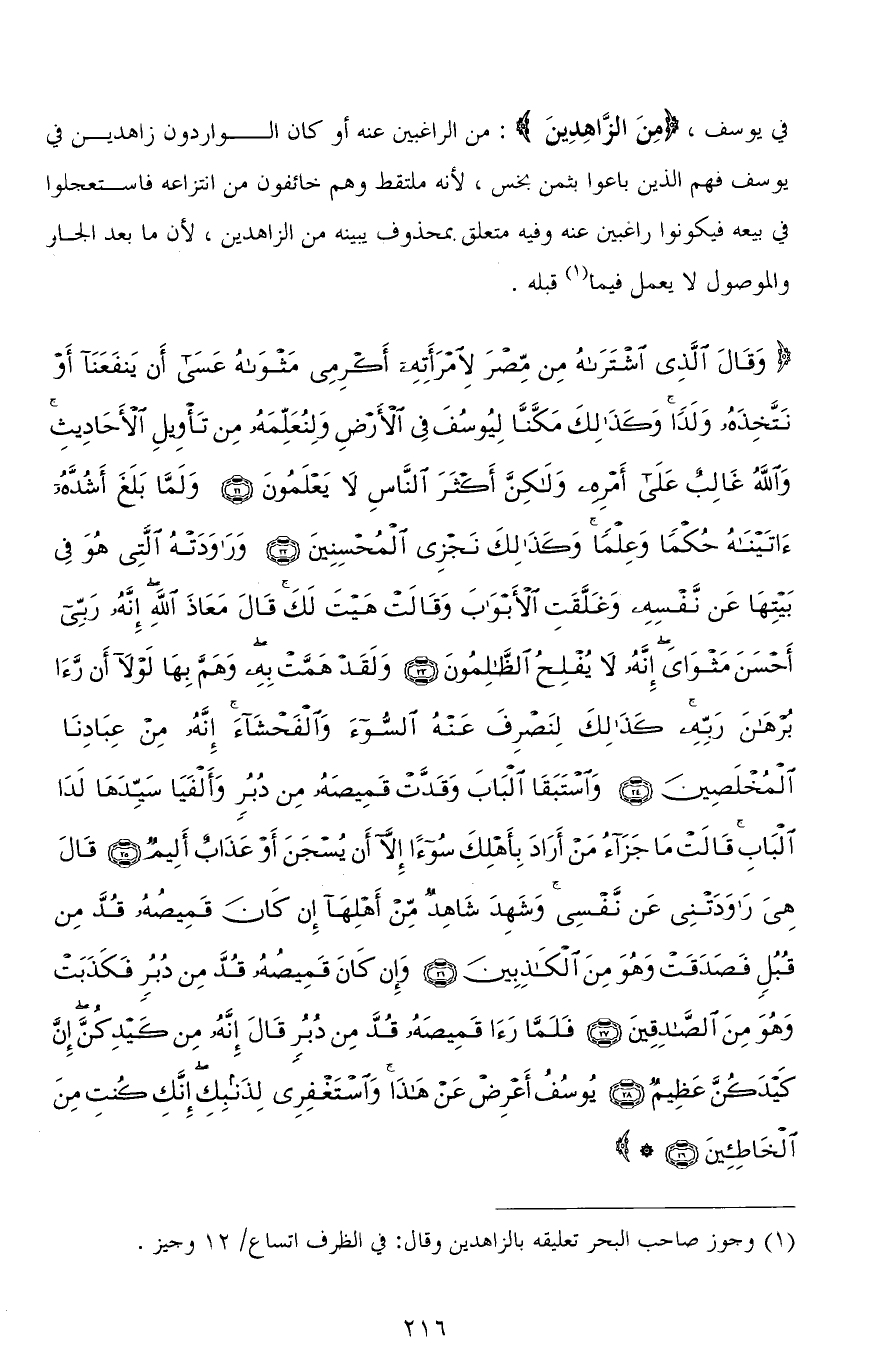 في يوسف ، ﴿مِنَ الزَّاهِدِينَ﴾ : من الراغبين عنه أو كان الـــــواردون زاهديـــن في
يوسف فهم الذين باعوا بثمن بخس ، لأنه ملتقط وهم خائفون من انتزاعه فاســتعجلوا
في بيعه فيكونوا راغبين عنه وفيه متعلق بمحذوف يبينه من الزاهدين ، لأن ما بعد الجـار
والموصول لا يعمل فيما(١) قبله .
﴿ وَقَالَ ٱلَّذِى ٱشْتَرَىٰهُ مِن مِّصْرَ لِٱمْرَأَتِهِۦٓ أَكْرِمِى مَثْوَىٰهُ عَسَىٰٓ أَن يَنفَعَنَآ أَوْ
نَتَّخِذَهُۥ وَلَدًا ۚ وَكَذَٰلِكَ مَكَّنَّا لِيُوسُفَ فِى ٱلْأَرْضِ وَلِنُعَلِّمَهُۥ مِن تَأْوِيلِ ٱلْأَحَادِيثِ ۚ
وَٱللَّهُ غَالِبٌ عَلَىٰٓ أَمْرِهِۦ وَلَٰكِنَّ أَكْثَرَ ٱلنَّاسِ لَا يَعْلَمُونَ ٢١ وَلَمَّا بَلَغَ أَشُدَّهُۥٓ
ءَاتَيْنَٰهُ حُكْمًا وَعِلْمًا ۚ وَكَذَٰلِكَ نَجْزِى ٱلْمُحْسِنِينَ ٢٢ وَرَٰوَدَتْهُ ٱلَّتِى هُوَ فِى
بَيْتِهَا عَن نَّفْسِهِۦ وَغَلَّقَتِ ٱلْأَبْوَٰبَ وَقَالَتْ هَيْتَ لَكَ ۚ قَالَ مَعَاذَ ٱللَّهِ ۖ إِنَّهُۥ رَبِّىٓ
أَحْسَنَ مَثْوَاىَ ۖ إِنَّهُۥ لَا يُفْلِحُ ٱلظَّٰلِمُونَ ٢٣ وَلَقَدْ هَمَّتْ بِهِۦ ۖ وَهَمَّ بِهَا لَوْلَآ أَن رَّءَا
بُرْهَٰنَ رَبِّهِۦ ۚ كَذَٰلِكَ لِنَصْرِفَ عَنْهُ ٱلسُّوٓءَ وَٱلْفَحْشَآءَ ۚ إِنَّهُۥ مِنْ عِبَادِنَا
ٱلْمُخْلَصِينَ ٢٤ وَٱسْتَبَقَا ٱلْبَابَ وَقَدَّتْ قَمِيصَهُۥ مِن دُبُرٍ وَأَلْفَيَا سَيِّدَهَا لَدَا
ٱلْبَابِ ۚ قَالَتْ مَا جَزَآءُ مَنْ أَرَادَ بِأَهْلِكَ سُوٓءًا إِلَّآ أَن يُسْجَنَ أَوْ عَذَابٌ أَلِيمٌ ٢٥ قَالَ
هِىَ رَٰوَدَتْنِى عَن نَّفْسِى ۚ وَشَهِدَ شَاهِدٌ مِّنْ أَهْلِهَآ إِن كَانَ قَمِيصُهُۥ قُدَّ مِن
قُبُلٍ فَصَدَقَتْ وَهُوَ مِنَ ٱلْكَٰذِبِينَ ٢٦ وَإِن كَانَ قَمِيصُهُۥ قُدَّ مِن دُبُرٍ فَكَذَبَتْ
وَهُوَ مِنَ ٱلصَّٰدِقِينَ ٢٧ فَلَمَّا رَءَا قَمِيصَهُۥ قُدَّ مِن دُبُرٍ قَالَ إِنَّهُۥ مِن كَيْدِكُنَّ ۖ إِنَّ
كَيْدَكُنَّ عَظِيمٌ ٢٨ يُوسُفُ أَعْرِضْ عَنْ هَٰذَا ۚ وَٱسْتَغْفِرِى لِذَنۢبِكِ ۖ إِنَّكِ كُنتِ مِنَ
ٱلْخَاطِـِٔينَ ٢٩ * ﴾
(١) وجوز صاحب البحر تعليقه بالزاهدين وقال: في الظرف اتساع/ ١٢ وجيز .
٢١٦